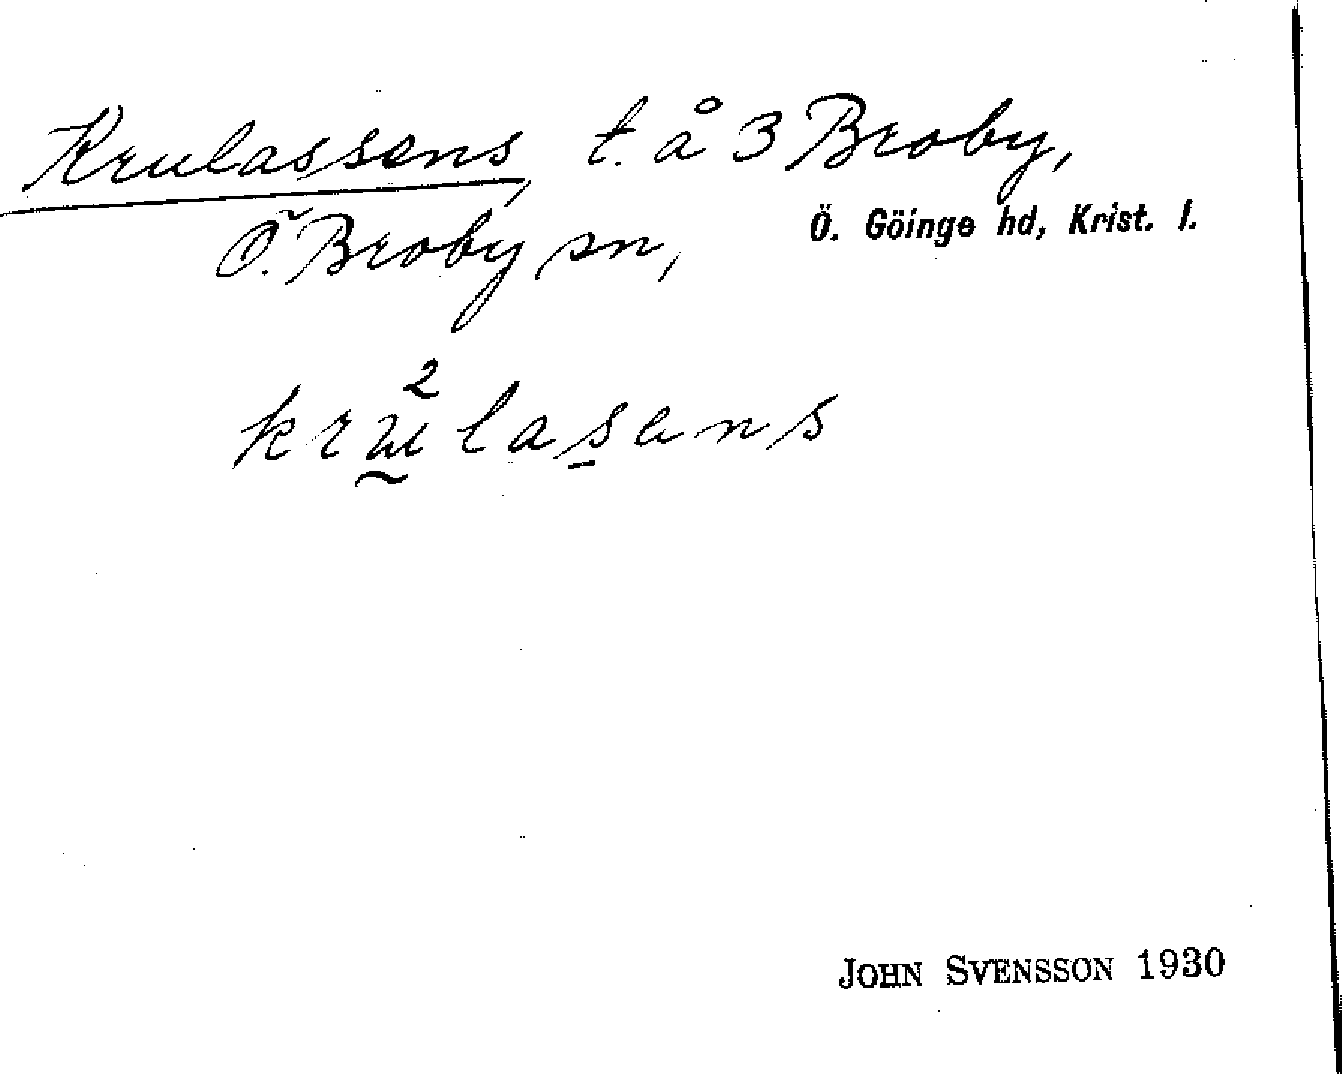 Krulassens, t. å 3 Broby,
Ö. Broby sn, Ö. Göinge hd, Krist. l.
2
krulasens
JOHN SVENSSON 1930